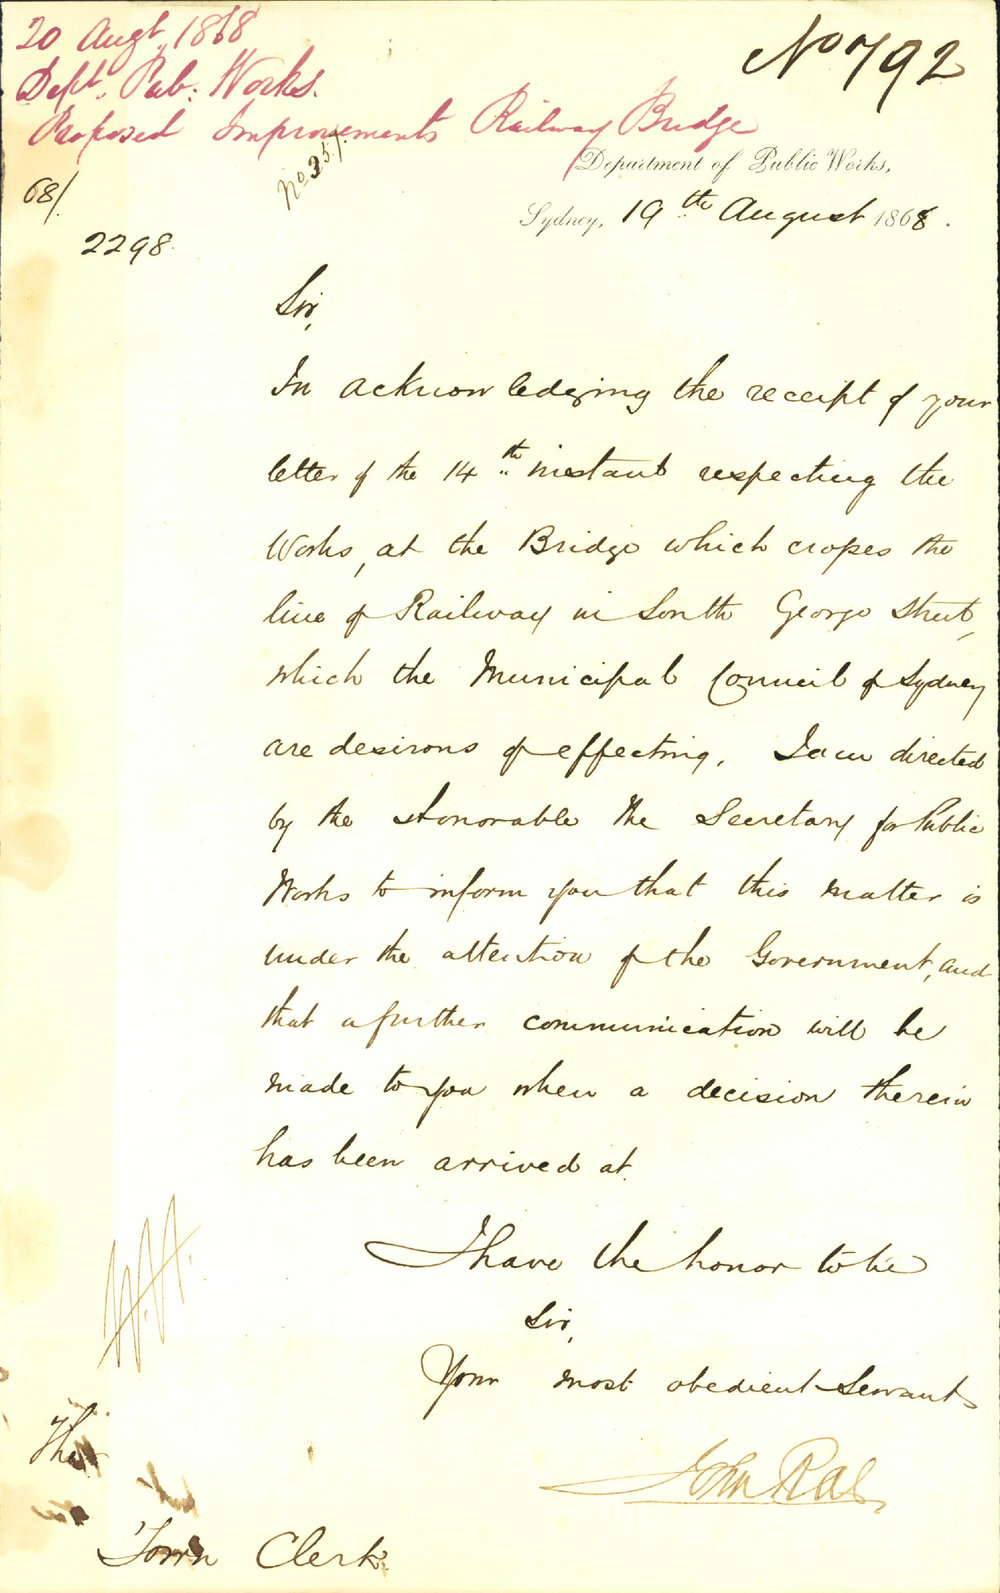 20 Augt. 1868
Dept. Pub: Works.
Proposed Improvements Railway Bridge
No 792
No 357.
68/
2298.
Department of Public Works,
Sydney, 19th August 1868.
Sir,
In acknowledging the receipt of your
letter of the 14th instant respecting the
Works, at the Bridge which crosses the
line of Railway in South George Street,
which the Municipal Council of Sydney
are desirous of effecting, I am directed
by the Honorable the Secretary for Public
Works to inform you that this matter is
under the attention of the Government, and
that a further communication will be
made to you when a decision therein
has been arrived at.
I have the honor to be
Sir,
Your most obedient Servant
John Rae
The
Town Clerk.